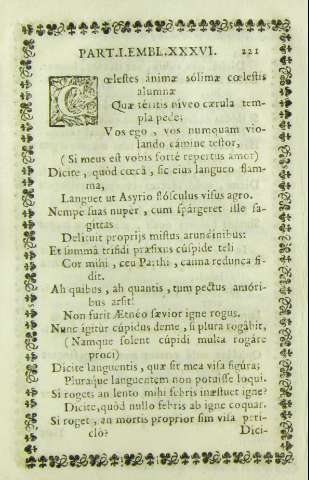 PART.I.EMBL.XXXVI. 221
Cœlestes animæ sólimæ cœlestis
alumnæ
Quæ téritis niveo cærula tem-
pla pede;
Vos ego, vos numquam vio-
lando cámine testor,
(Si meus est vobis forté repertus amor)
Dicite, quód cœcâ, sic eius langueo flam-
ma,
Languet ut Asyrio flósculus visus agro.
Nempe suas nuper, cum spárgeret ille sa-
gittas
Delituit proprijs mistus arundinibus:
Et summâ trifidi præfixus cúspide teli
Cor mihi, ceu Parthi, canna redunca fi-
dit.
Ah quibus, ah quantis, tum pectus amóri-
bus arsit!
Non furit Ætnéo sævior igne rogus.
Nunc igitúr cúpidus deme, si plura rogábit,
(Namque solent cúpidi multa rogáre
proci)
Dicite languentis, quæ sit mea visa figúra;
Pluraque languentem non potuisse loqui.
Si roget, an lento mihi febris inæstuet igne?
Dicite, quód nullo febris ab igne coquar.
Si roget, an mortis proprior sim visa perí-
clô?
Dici-